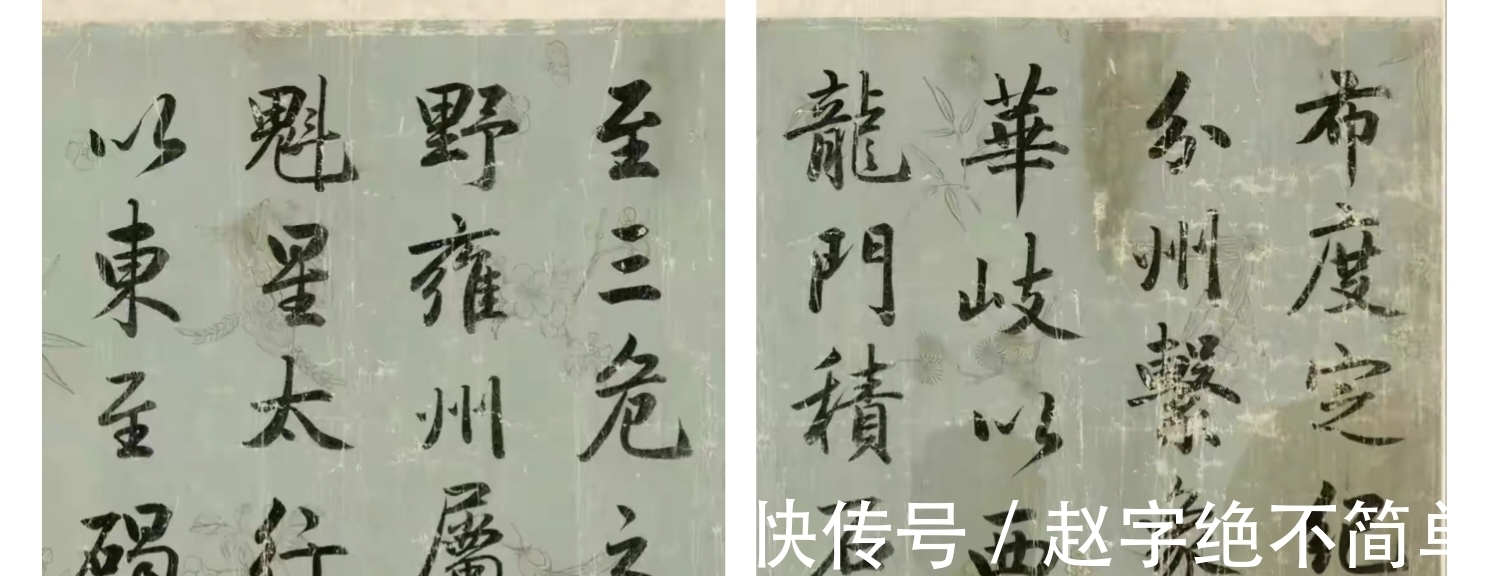 布度定紀
分州繫象
華岐以西
龍門積石
至三危之
野雍州屬
魁星太行
以東至碣
快传号 / 赵字绝不简单